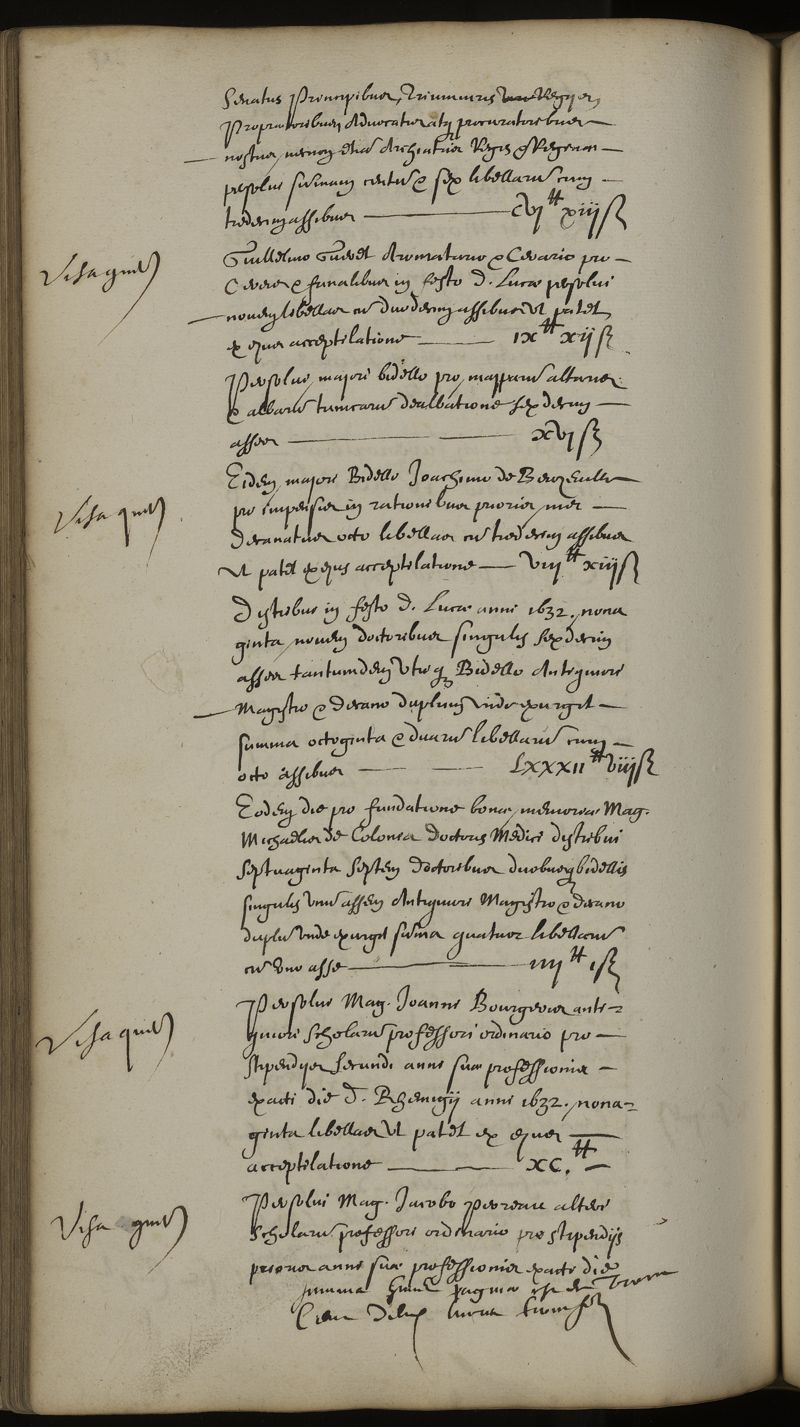 Senatus Principibus, Triumviris Regijs,
Propraetoribus Advocatis atq procuratoribus
nostris, necnon etiā Archiatris Regis & Reginae
persolvi sūmam centū & sex libellarū cum
tredecim assibus — CVI ₶ xiij ß
Visa quitt
Guillelmo Gueret Aromatario & Cerario pro
Cereis & funalibus in festo d. Lucae persolvi
novem libellas cū duodecim assibus ut patet
ex ejus acceptilatione — ix ₶ xij ß
Persolvi majori bidello pro mapparū altaris
& albarū tunicarū dealbatione sexdecim
asses — xvi ß
Visa quitt
Eidem majori Bidello Joachimo de
pro impensis in rationibus prioris mei
decanatus octo libellas cū tredecim assibus
ut patet ex ejus acceptilatione — viij ₶ xiij ß
Distribui in festo d. Lucae anni 1632. nona
ginta novem doctoribus singulis sexdecim
asses tantumdem utriq Bidello Antiquiori
Magistro & decano duplum unde exurgit
summa octoginta & duarū libellarū cum
octo assibus — LXXXII ₶ viij ß
Eodem die pro fundatione bonae memoriae Mag.
Michaelis de Colonia doctoris Medici distribui
septuaginta septem doctoribus duobusq bidellis
singulis unū assem Antiquiori Magistro & decano
duplū unde exurgit sūma quatuor libellarū
cū uno asse — iiij ₶ i ß
Visa quitt
Persolvi Mag. Joanni Bourgeois anti-
quiori scholarū professori ordinario pro
stipendijs secundi anni suae professionis
exacti die d. Rhemigij anni 1632. nona-
ginta libellas ut patet ex ejus
acceptilatione — XC. ₶
Visa quitt
Persolvi Mag. Jacobo Perreau alteri
scholarū professori ordinario pro stipendijs
prioris anni suae professionis exacti die
summa paginae est